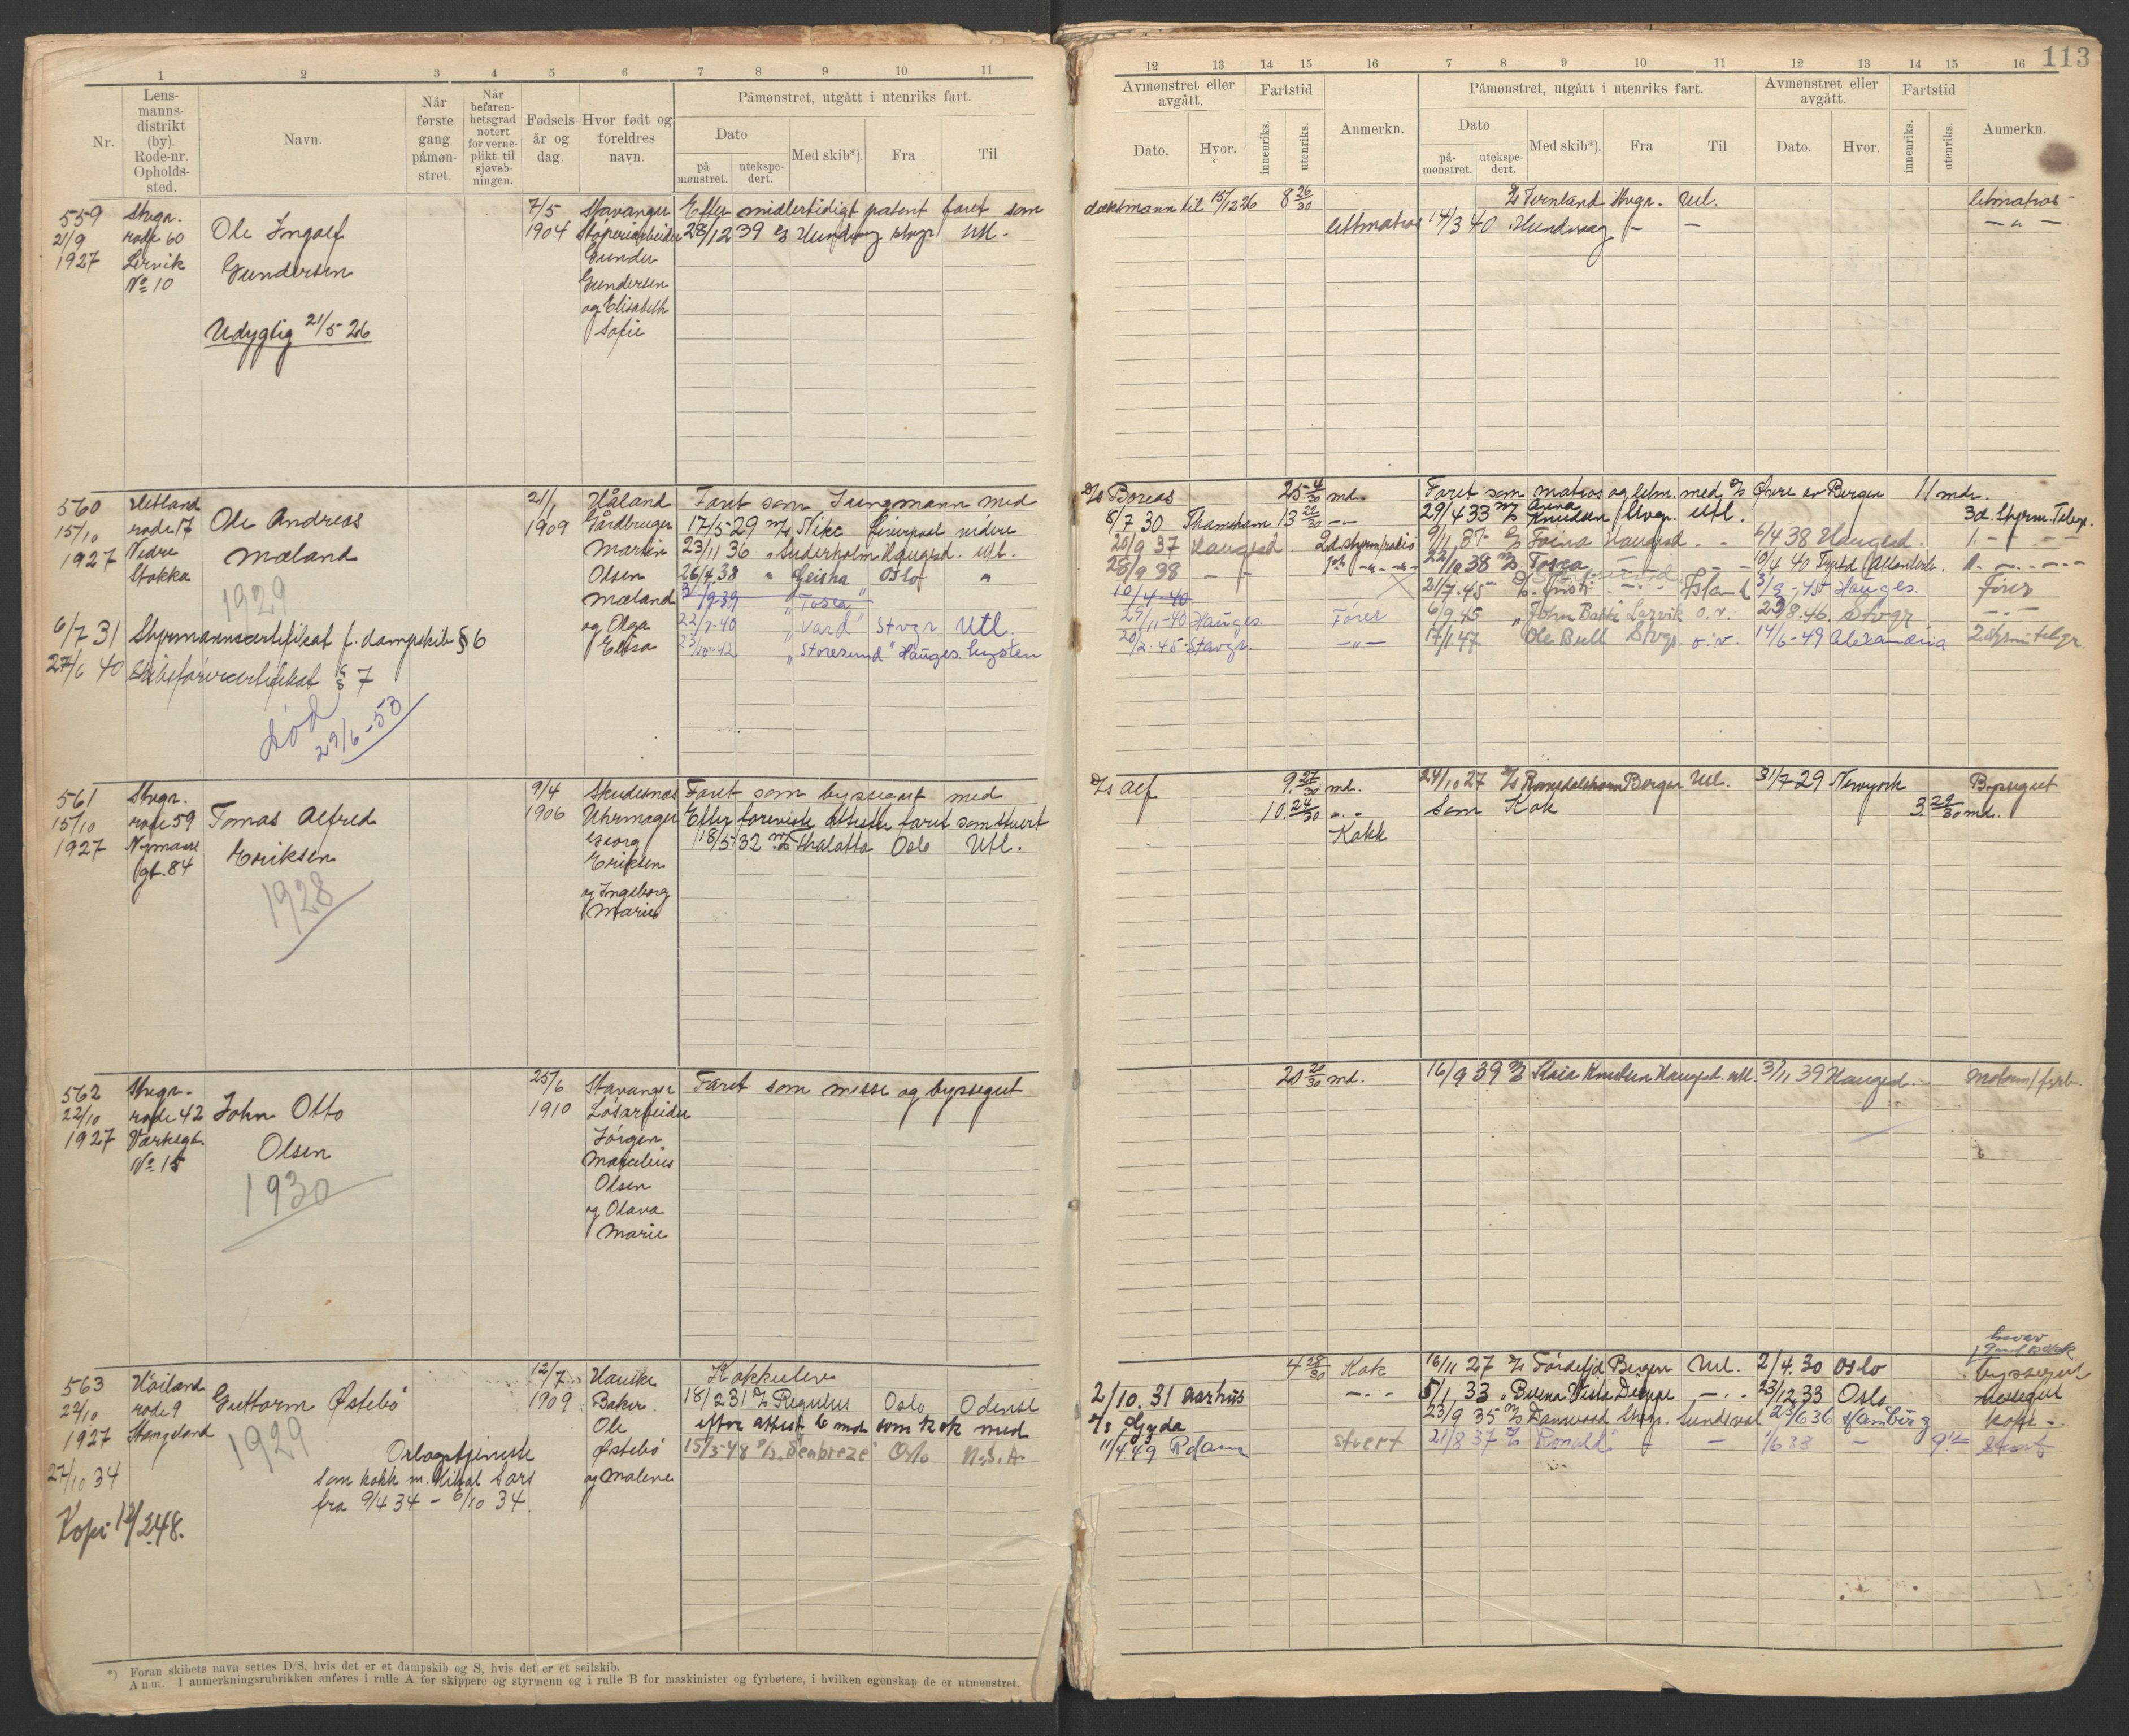 1 2 3 4 5 6 7 8 9 10 11
Nr.
Lens-
manns-
distrikt
(by).
Rode-nr.
Opholds-
sted.
Navn.
Når
første
gang
påmøn-
stret.
Når
befaren-
hetsgrad
notert
for verne-
plikt. til
sjøveb-
ningen.
Fødsels-
år og
dag.
Hvor født og
foreldres
navn.
Påmønstret, utgått i utenriks fart.
Dato
på
mønstret.
utekspe-
dert.
Med skib*).
Fra
Til
559
21/9
1927
Stvgr.
rode 60
Lervik
No 10
Ole Ingolf
Gundersen
Udygtig 21/5 26
7/5
1904
Stavanger
Støperiarbeider
Gunder
Gundersen
og Elisabeth
Sofie
Efter midlertidigt patent faret som
28/12 39 Hundvaag Stvgr Utl.
560
15/10
1927
Hetland
rode 17
Nedre
Stokka
Ole Andreas
Mæland
1929
6/7 31 Styrmannscertifikat f. dampskib § 6
27/6 40 Skibsførercertifikat § 7
død
29/6-53
21/1
1909
Håland
Gårdbruger
Martin
Olsen
Mæland
og Olga
Elisa
Faret som Jungmann med
17/5 29 M/S Nike Liverpool videre
23/11 36 " Suderholm Haugsd. Utl.
26/4 38 " Geisha Oslo "
9-39 "Tosca"
22/7-40 "Vard" Stvgr Utl.
23/10-42 "Storesund" Hauges. kysten
561
15/10
1927
Stvgr.
rode 59
Nymanns
gt. 84
Tomas Alfred
Eriksen
1928
9/4
1906
Skudesnes
Uhrmager
Georg
Eriksen
og Ingeborg
Marie
Faret som byssegut med
Efter foreviste atteste faret som stuert
18/5 32 M/S Thalatta Oslo Utl.
562
22/10
1927
Stvgr.
rode 42
Værksgt.
No 15
John Otto
Olsen
1930
25/6
1910
Stavanger
Løsarbeider
Jörgen
Marelius
Olsen
og Olava
Marie
Faret som messe og byssegut
563
22/10
1927
27/10 34
Höiland
rode 9
Stangeland
Guttorm Østebö
1929
Orlogstjeneste
som kokk m. Michael Sars
fra 9/4 34 - 6/10 34
Kopi 12/2 48.
12/7
1909
Hauske
Baker
Ole
Østebö
og Malene
Kokkelev
18/2 31 D/S Regulus Oslo Odense
efter attest 6 md som kok med
15/3-48 "Seabreeze" Oslo U.S.A.
*) Foran skibets navn settes D/S, hvis det er et dampskib og S, hvis det er et seilskib.
Anm. I anmerkningsrubrikken anføres i rulle A for skippere og styrmenn og i rulle B for maskinister og fyrbøtere, i hvilken egenskap de er utmønstret.
113
12 13 14 15 16 7 8 9 10 11 12 13 14 15 16
Avmønstret eller
avgått.
Dato.
Hvor.
Fartstid
innenriks.
utenriks.
Anmerkn.
Påmønstret, utgått i utenriks fart.
Dato
på-
mønstret.
utekspe-
dert.
Med skib*).
Fra
Til
Avmønstret eller
avgått.
Dato.
Hvor.
Fartstid
innenriks.
utenriks.
Anmerkn.
dæksmann til 15/12 26 8 26/30 Vernland Stvgr. Utl. letmatros
lettmatros 14/3 40 Hundvaag - - - " -
D/S Boreas 25 4/30 md. Faret som matros og letm. med D/S Øvre av Bergen 11 mdr.
8/7 30 Thamsham 13 22/30 - - 29/4 33 M/S Anna Knudsen Stvgr. Utl. 3d. Styrm. Telegr.
20/9 37 Haugsd. 2d. styrm/radio 9/11 37 Haugsd - - 6/4 38 Haugesd. 1. - -
28/9 38 - - 22/10 38 M/S Tosca - -
10/4-40 21/7-45 Island Hauges. Fører
27/11-40 Hauges. Fører 6/9.45 "John Bakke" Larvik o.v. 29/8.46. Stvgr - " -
20/2-45 Stavgr. - " - 17/1.47 Ole Bull Stvgr o.v. 14/6-49 Alexandria 2 Styrm. telgr.
D/S Alf 9 27/30 md. 24/10 27 Romsdalshorn Bergen Utl. 31/7 29 Newyork Byssegut
10 24/30 " " som Kok 3 22/30 md.
Kokk
20 20/30 md. 16/9 39 M/S Kaia Knudsen Haugsd. utl. 3/11 39 Haugsd. Motorm/fyrb.
4 28/30 Kok 16/11 27 Fördefjd Bergen Utl. 2/4.30 Oslo byssegut
2/10.31 Aarhus - " - 5/1 33 " Buena Vista Dieppe - " - 23/12 33 Oslo
D/S Gyda 23/9 35 M/S Danwood Stvgr. Sundsval 23/6 36 Hamburg
11/4.49 Rdam stuert 21/8 37 Ronald - 1/6 38 -